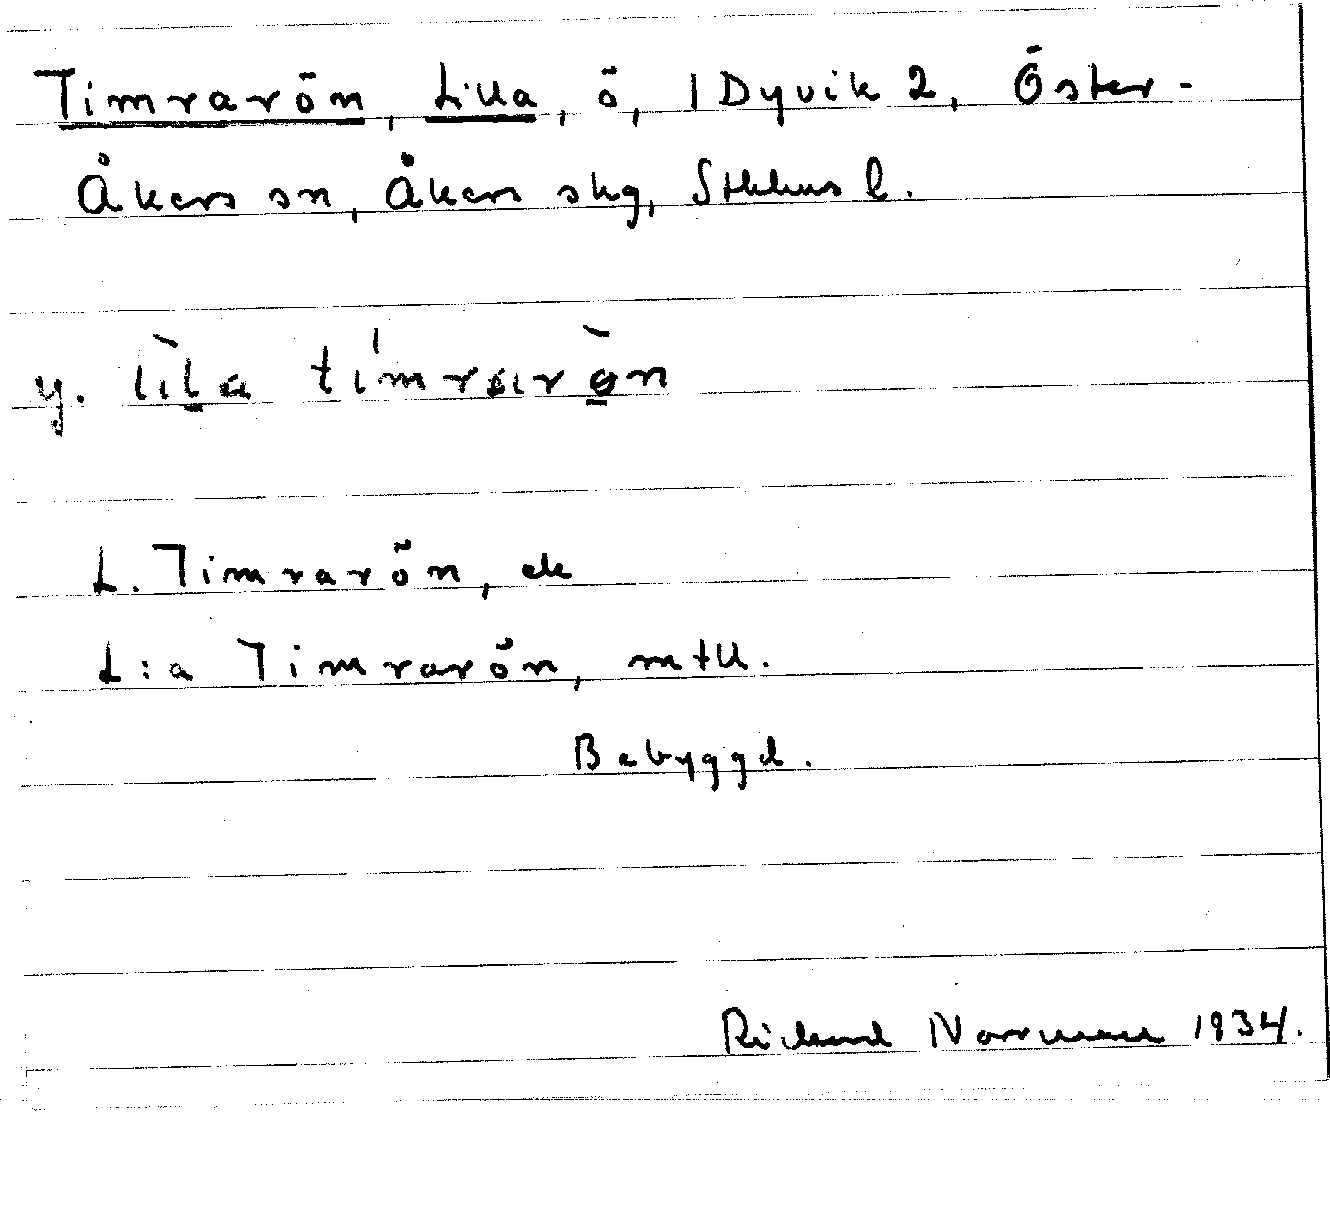 Timrarön, Lilla, ö, 1 Dyvik 2, Öster-
Åkers sn, Åkers skg, Sthlms l.
y. lìla tímraròn
L. Timrarön, ek
L:a Timrarön, mtll.
Bebyggd.
Richard Norrman 1934.